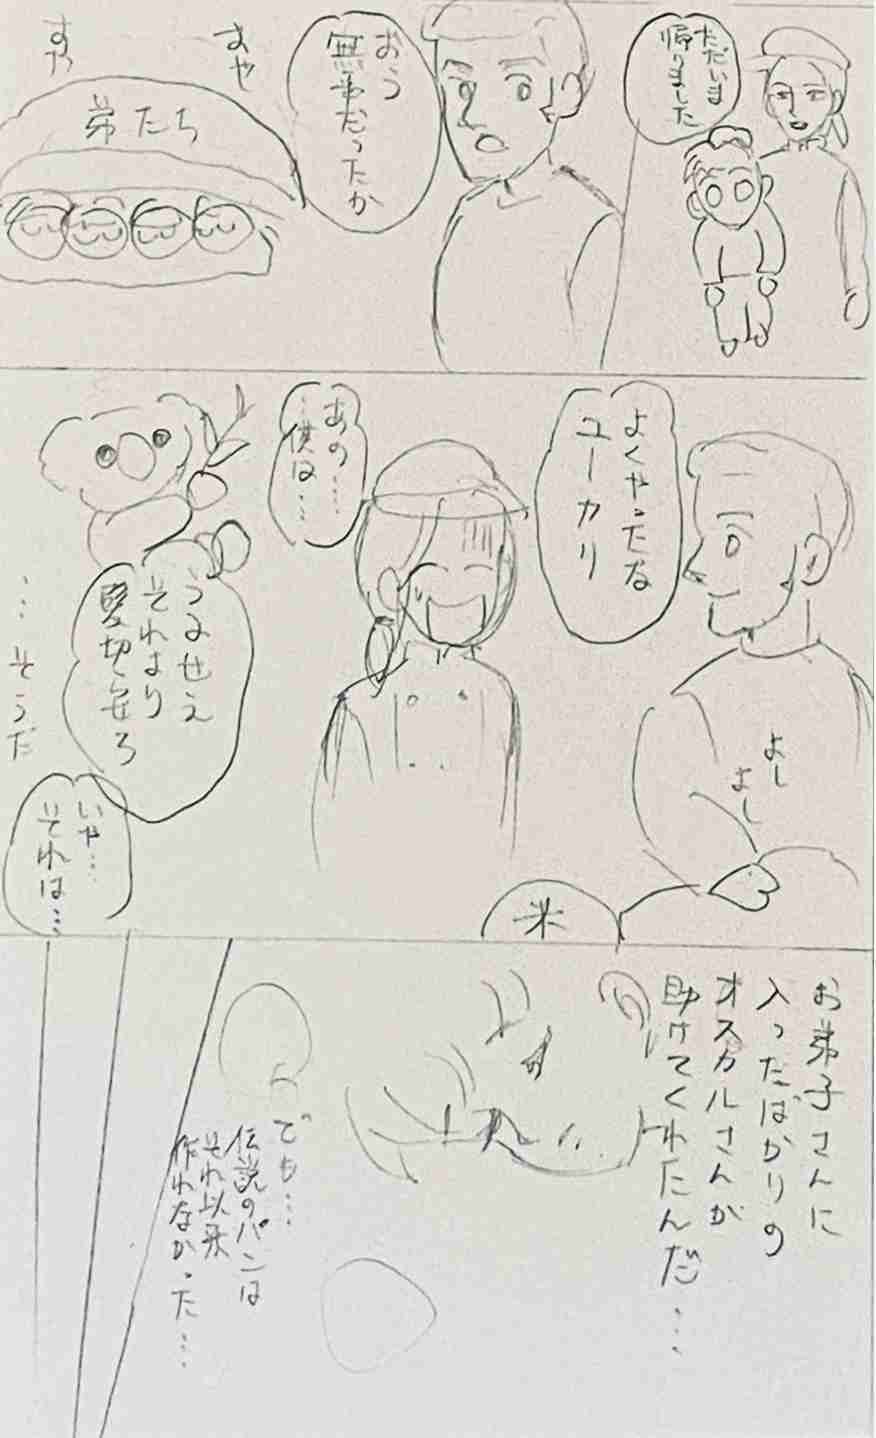 ただいま
帰りました
おう
無事だったか
すや
すや
弟たち
よくやったな
ユーカリ
よし
よし
米
あの……
…僕は…
うるせえ
それより
髪切れ
いや…
それは…
…そうだ
お弟子さんに
入ったばかりの
オスカルさんが
助けてくれたんだ…
でも…
伝説のパンは
それ以来
作れなかった…